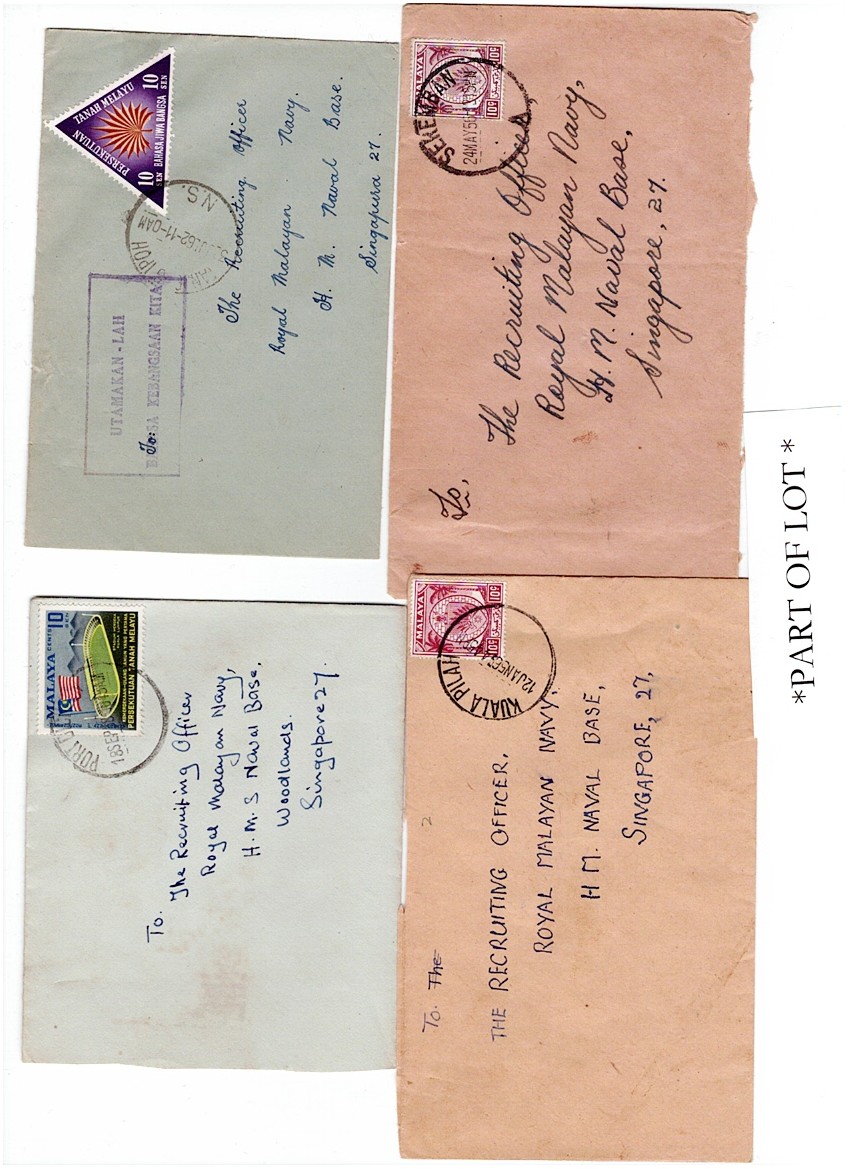 PERSEKUTUAN TANAH MELAYU
10 SEN BAHASA JIWA BANGSA 10 SEN
IPOH
N.S.
62-11-0AM
UTAMAKAN-LAH
SA KEBANGSAAN KITA
To:
The Recruiting Officer
Royal Malayan Navy.
H. M. Naval Base.
Singapura 27.
MALAYA
10c
10c
SEREMBAN
24MAY56
To,
The Recruiting Officer,
Royal Malayan Navy,
H. M. Naval Base,
Singapore, 27.
MALAYA
CENTS SEN 10
PERSEKUTUAN TANAH MELAYU
PORT D
18SEP
To.
The Recruiting Officer
Royal Malayan Navy,
H. M. S Naval Base,
Woodlands.
Singapore 27.
MALAYA
10c
10c
KUALA PILAH
12JAN56
To. The
THE RECRUITING OFFICER.
ROYAL MALAYAN NAVY,
H M. NAVAL BASE,
SINGAPORE, 27,
*PART OF LOT *